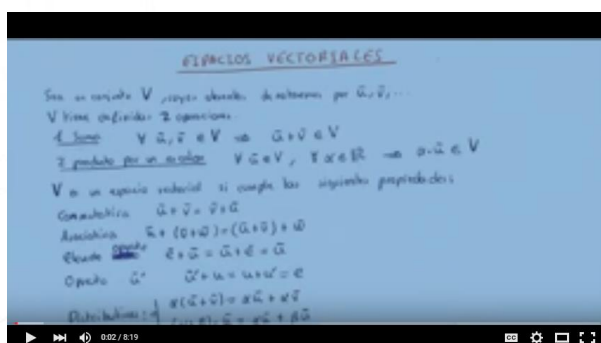 ESPACIOS VECTORIALES
Sea un conjunto V, cuyos elementos denotaremos por ū, v̄, ...
V tiene definidas 2 operaciones:
1 Suma ∀ ū, v̄ ∈ V ⇒ ū + v̄ ∈ V
2 producto por un escalar ∀ ū ∈ V, ∀ α ∈ ℝ ⇒ α·ū ∈ V
V es un espacio vectorial si cumple las siguientes propiedades:
Conmutativa ū + v̄ = v̄ + ū
Asociativa ū + (v̄ + w̄) = (ū + v̄) + w̄
e + ū = ū + e = ū
Opuesto ū' ū' + u = u + u' = e
Distributivas: α(ū + v̄) = αū + αv̄
0:02 / 8:19
CC